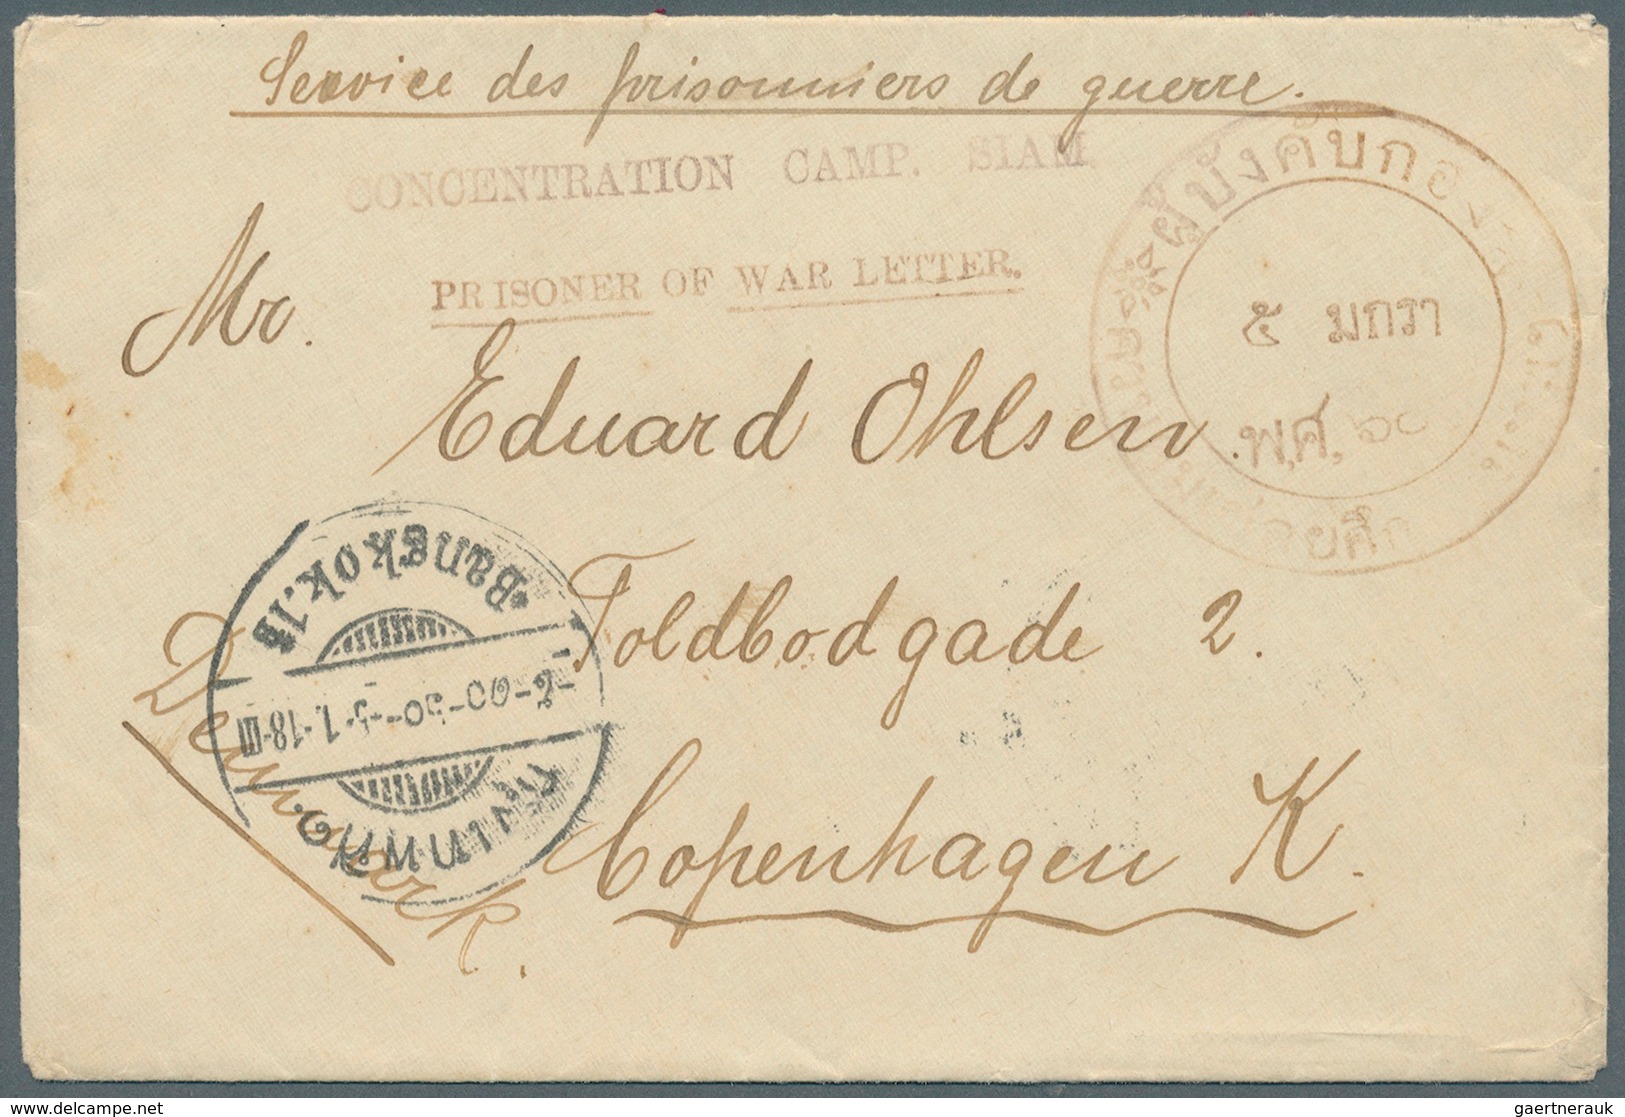 Service des prisonniers de guerre.
CONCENTRATION CAMP. SIAM
PRISONER OF WAR LETTER.
Mr. Eduard Ohlsen.
Toldbodgade 2.
Copenhagen K.
Denmark.
ผู้บังคับกอง
๕ มกรา
พ,ศ, ๖๐
Bangkok.1
1.-18-III
delcampe.net
gaertnerauk